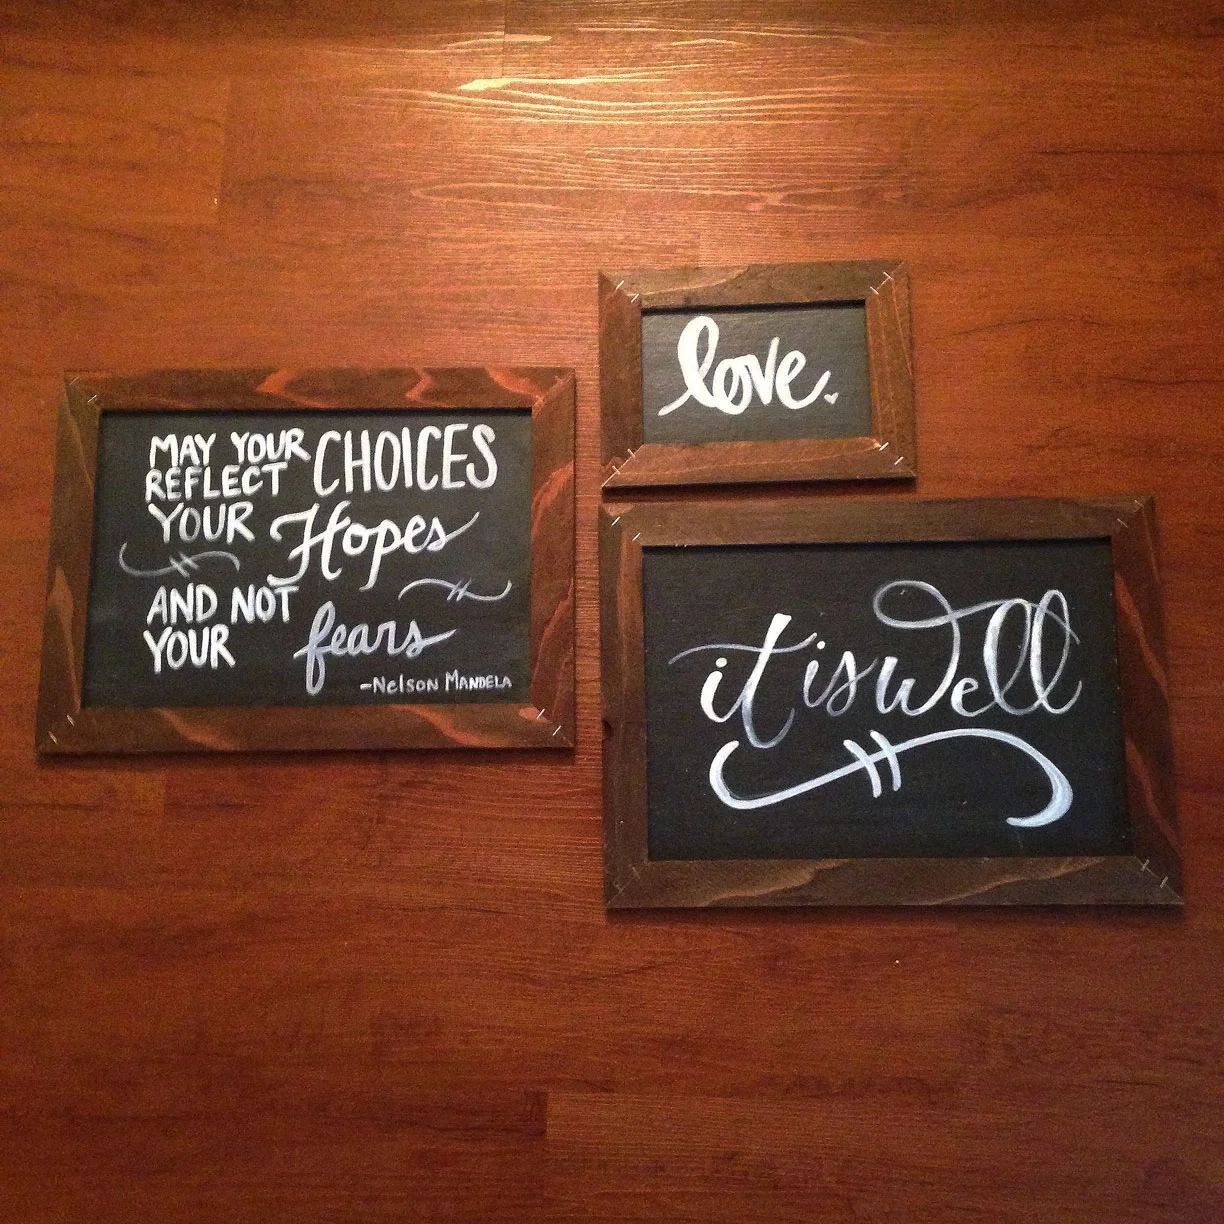 MAY YOUR
REFLECT CHOICES
YOUR Hopes
AND NOT
YOUR fears
-Nelson MANDELA
love.
it is well